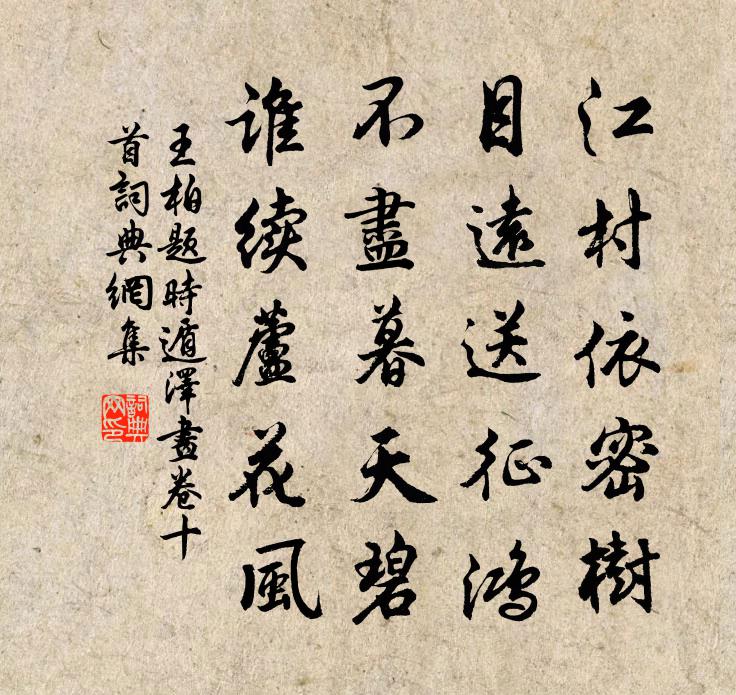 江村依密樹
目遠送征鴻
不盡暮天碧
誰續蘆花風
王柏題時遁澤畫卷十
首詞典網集
詞典
网印